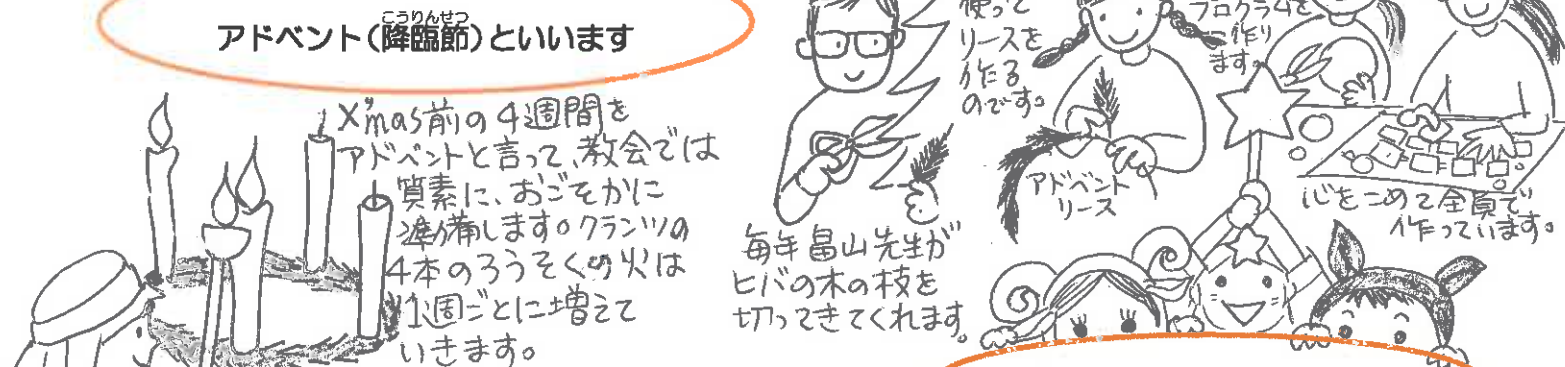 アドベント(降臨節)といいます
こうりんせつ
X'mas前の4週間を
アドベントと言って、教会では
質素に、おごそかに
準備します。クランツの
4本のろうそくの火は
1週ごとに増えて
いきます。
毎年畠山先生が
ヒバの木の枝を
切ってきてくれます。
使って
リースを
作る
のです。
アドベント
リース
プログラムを
作り
ます。
心をこめて全員で
作っています。